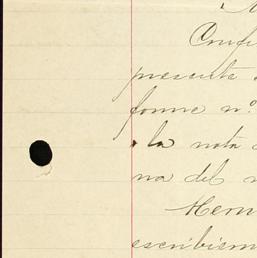 Confi
presenta
forme nº
a la nota
na del
escribism